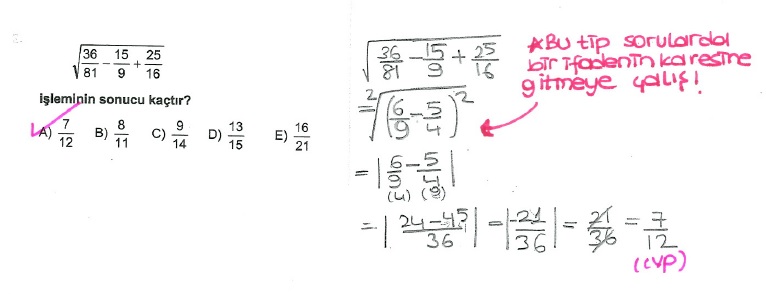 √(36/81 − 15/9 + 25/16)
işleminin sonucu kaçtır?
A) 7/12 B) 8/11 C) 9/14 D) 13/15 E) 16/21
√(36/81 − 15/9 + 25/16)
= ²√((6/9 − 5/4)²)
= |6/9 − 5/4|
(4) (9)
= |24−45/36| = |−21/36| = 21/36 = 7/12
(cvp)
*Bu tip sorularda
bir ifadenin karesine
gitmeye çalış!